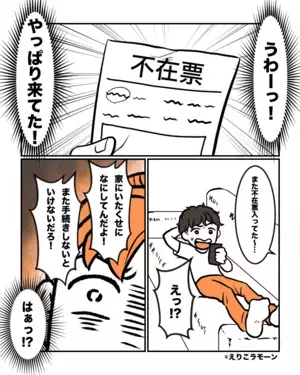 うわーっ！
不在票
やっぱり来てた！
また不在票入ってた〜…
えっ!?
家にいたくせに
なにしてんだよ！
また手続きしないと
いけないだろ！
はぁっ!?
©えりこラモーン